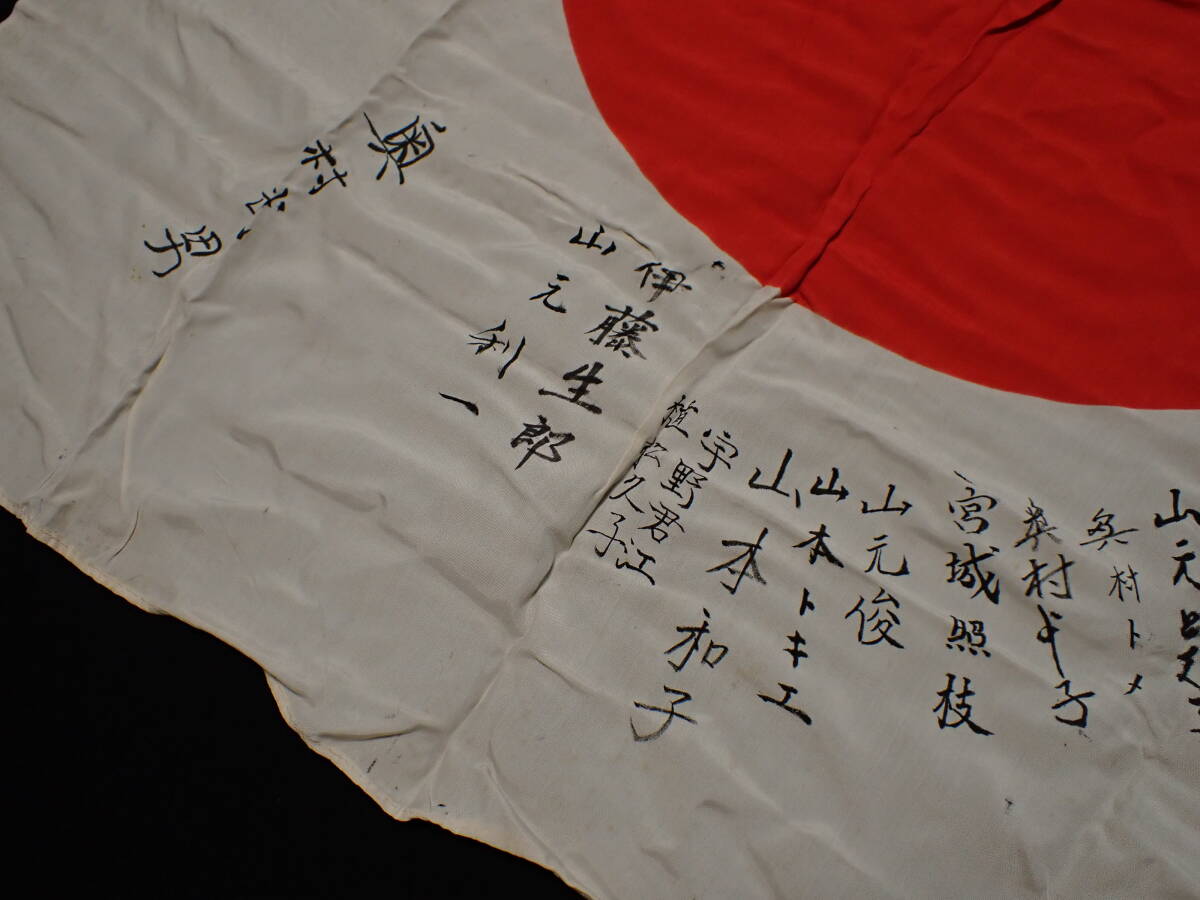 山元
奥村トメ
奥村 子
宮城照枝
山元俊
山本トキエ
山本和子
宇野君江
植松久子
伊藤生郎
山元利一
奥村 男